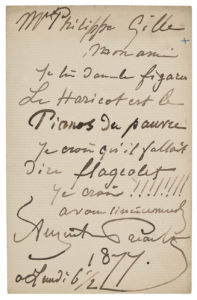 Mr Philippe Gille
mon ami
Je lis dans le figaro
Le Haricot est le
Pianos du pauvre
Je crois qu'il fallait
dire flageolet
Je crois !!!!!!!!
a vous
1877.
lundi 6